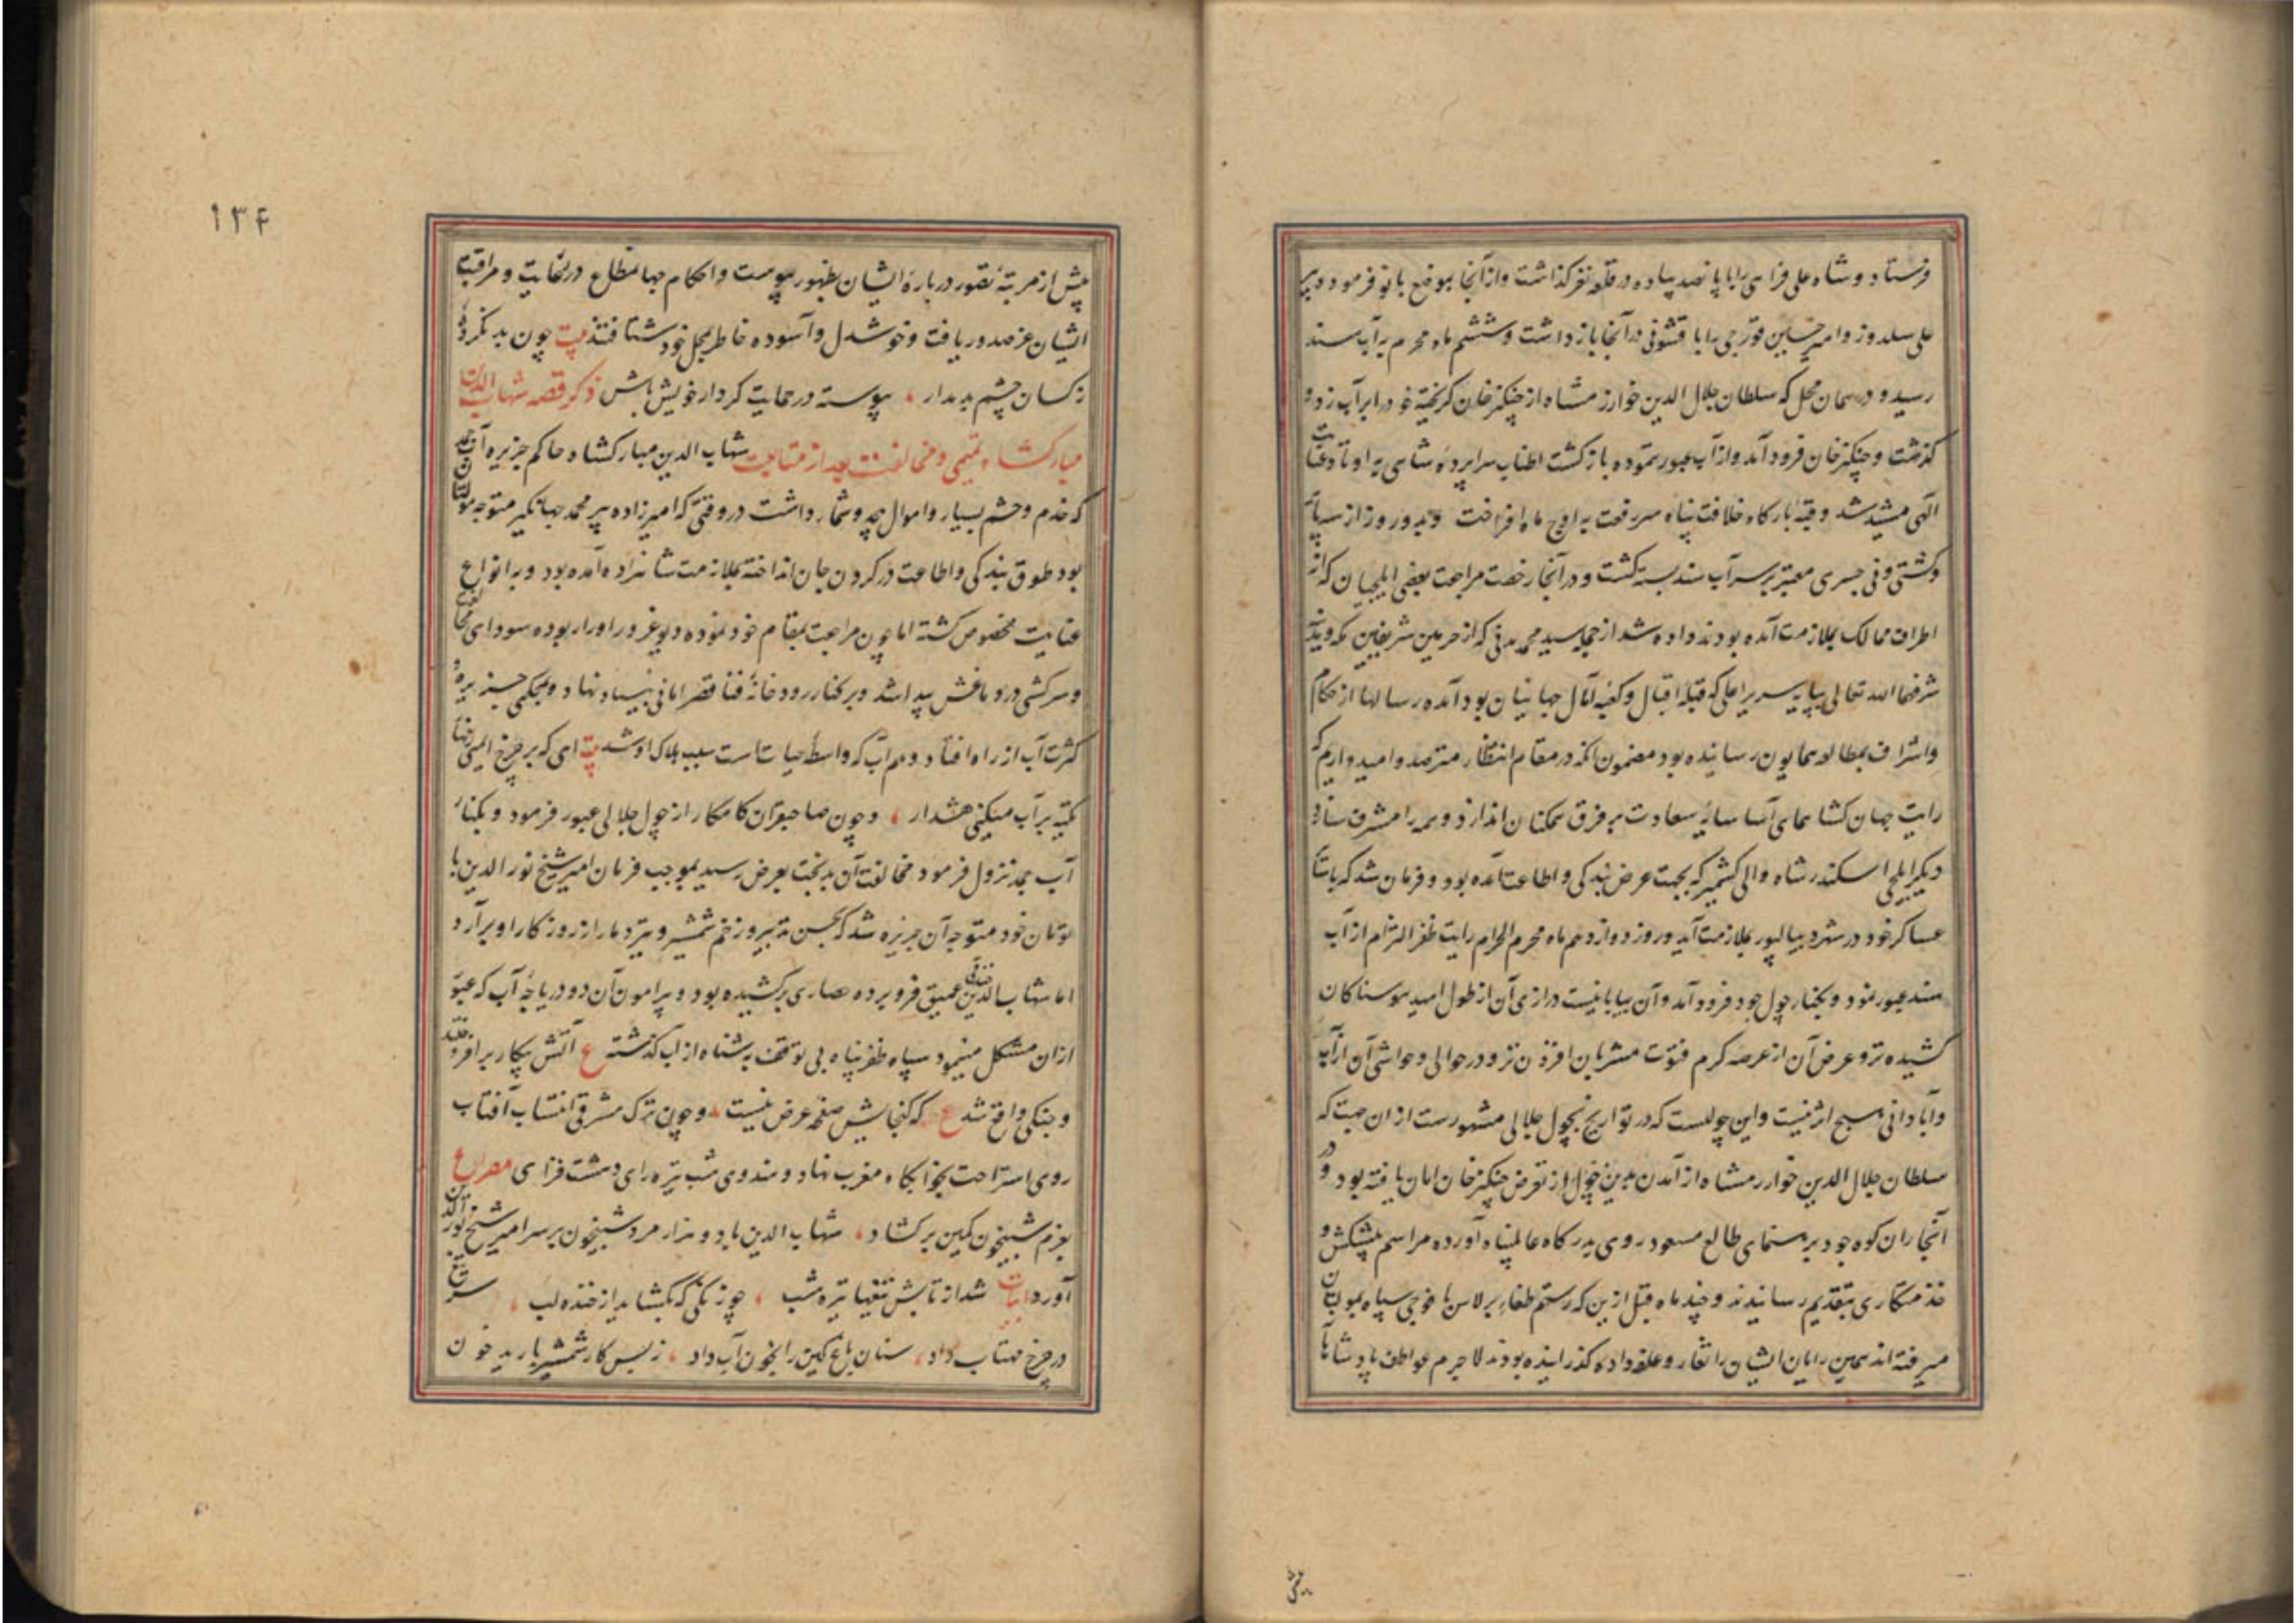 فرستاد و شاه علی فراهی را با پانصد پیاده در قلعه نغر گذاشت و از آنجا بموضع بانو فرمود و پیر
علی سلدوز و امیر حسین قورچی را با قشونی در آنجا بازداشت و ششم ماه محرم به آب سند
رسید و در همان محل که سلطان جلال الدین خوارزمشاه از چنکیزخان گریخته خود را بر آب زد و
گذشت و چنکیزخان فرود آمد و از آب عبور ننموده بازگشت اطناب سراپرده شاهی به اوتاد عنایت
الهی مشید شد و قبه بارگاه خلافت پناه سر رفعت به اوج ماه افراخت و بدو روز از سه پایه
و کشتی و نی جسری معتبر بر سر آب سند بسته گشت و در آنجا رخصت مراجعت بعضی ایلچیان که از
اطراف ممالک بملازمت آمده بودند داده شد از جمله سید محمد مدنی که از حرمین شریفین مکه و مدینه
شرفهما الله تعالی بپایه سریر اعلی که قبله اقبال و کعبه آمال جهانیان بود آمده رسالها از حکام
و اشراف بمطالعه همایون رسانیده بود مضمون آنکه در مقام انتظار مترصد و امیدواریم که
رایت جهان گشا همای آسا سایه سعادت بر فرق ممکنان اندازد و همه را مشرف سازد
دیگر ایلچی اسکندر شاه والی کشمیر که بجهت عرض بندگی و اطاعت آمده بود و فرمان شد که با
عساکر خود در شهر دیبالپور بملازمت آید و روز دوازدهم ماه محرم الحرام رایت ظفر التزام از آب
سند عبور نمود و بکنار چول جود فرود آمد و آن بیابانیست درازی آن از طول امید هوسناکان
کشیده تر و عرض آن از عرصه کرم فتوت مشربان افزون تر و در حوالی و حواشی آن از آب
و آبادانی هیچ اثر نیست و این چولیست که در تواریخ بچول جلالی مشهورست از ان جهت که
سلطان جلال الدین خوارزمشاه از آمدن بدین چول از تعرض چنکیزخان امان یافته بود و در
آنجا رایان کوه جود برهنمای طالع مسعود روی بدرگاه عالم پناه آورده مراسم پیشکش و
خدمتکاری بتقدیم رسانیدند و چند ماه قبل ازین که رستم طغای برلاس با فوجی سپاه بمولتان
میرفته اند همین رایان ایشان را تغار و علفه داده گذرانیده بودند لاجرم عواطف پادشاهانه
پیش
۱۳۴
پیش از مرتبه تصور درباره ایشان بظهور پیوست و احکام جهانمطاع در رعایت و مراقبت
ایشان عز صدور یافت و خوشدل و آسوده خاطر بمحل خود شتافتند بیت چون بد نکرده
ز کسان چشم بد مدار ، پیوسته در حمایت کردار خویش باش ذکر قصه شهاب الدین
مبارکشاه تمیمی و مخالفت بعد از متابعت شهاب الدین مبارکشاه حاکم جزیره آب جمد
که خدم و حشم بسیار و اموال بیحد و شمار داشت در وقتی که امیرزاده پیر محمد جهانگیر متوجه مولتان
بود طوق بندگی و اطاعت در گردن جان انداخته بملازمت شاهزاده آمده بود و به انواع
عنایت مخصوص گشته اما چون مراجعت بمقام خود نموده دیو غرور او را ربوده سودای مخالفت
و سرکشی در دماغش پیدا شد و بر کنار رودخانه فنا قصر امانی بنیاد نهاد و بمحکمی جزیره و
کثرت آب از راه افتاد و هم آب که واسطه حیاتست سبب هلاک او شد بیت ای که بر چرخ ایمنی زنهار
تکیه بر آب میکنی هشدار ، و چون صاحبقران کامکار از چول جلالی عبور فرمود و بکنار
آب جمد نزول فرمود مخالفت آن بدبخت بعرض رسید بموجب فرمان امیر شیخ نور الدین با
تومان خود متوجه آن جزیره شد که بحسن تدبیر و زخم شمشیر و تیر دمار از روزگار او برآرد
اما شهاب الدین خندقی عمیق فرو برده حصاری برکشیده بود و پیرامون آن دو دریاچه آب که عبور
ازان مشکل مینمود سپاه ظفرپناه بی توقف به شناه از آب گذشته ع آتش پیکار برافروختند
و جنگی واقع شد ع که گنجایش صفحه عرض نیست ، و چون ترک مشرقی انتساب آفتاب
روی استراحت بخوابگاه مغرب نهاد و هندوی شب تیره رای دهشت فزای مصراع
بعزم شبیخون کمین برگشاد ، شهاب الدین با ده هزار مرد شبیخون بر سر امیر شیخ نور الدین
آورد ابیات شد از تابش تیغها تیره شب ، چو زنگی که بگشاید از خنده لب ، سر تیغ
در چرخ مهتاب داد ، سنان باغ کین را بخون آب داد ، ز بس کابر شمشیر بارید خون